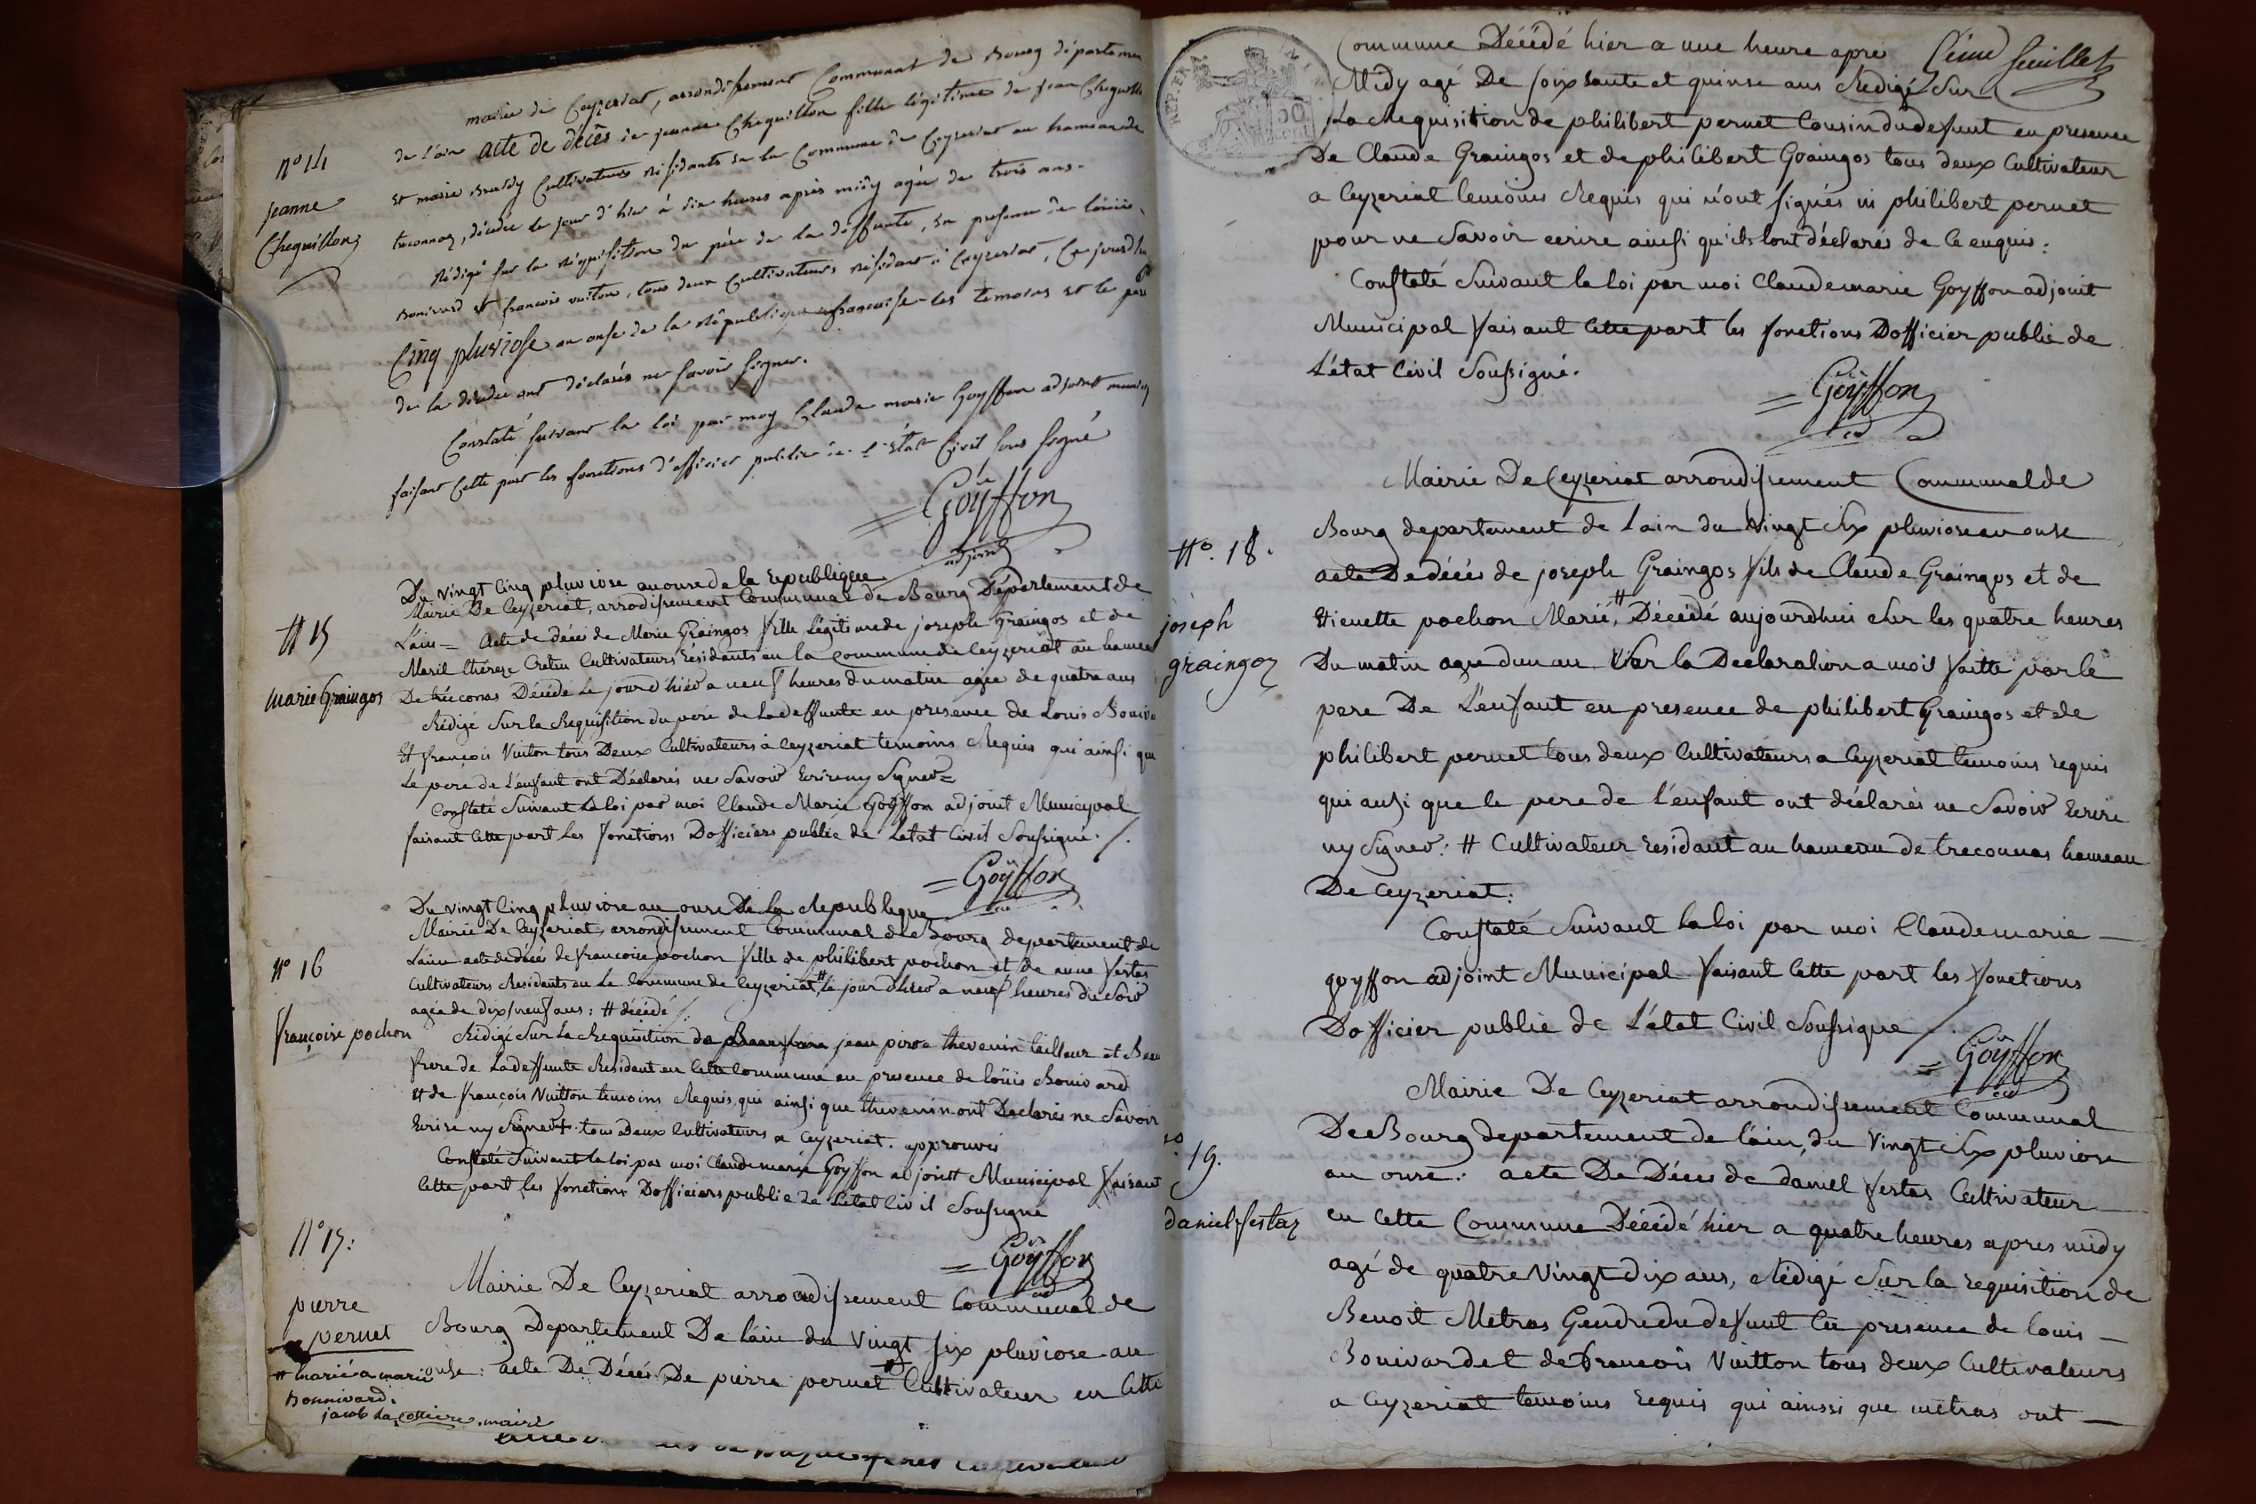 mairie de Ceyzeriat, arrondissement Communal de Bourg départemen
n° 14
de l'ain acte de décês de jeanne Chequillon fille légitime de jean Chequillon
jeanne
Chequillon
et marie Cultivateurs résidants en la Commune de Ceyzeriat au hameau de
treconnaz, décédée le jour d'hier à dix heures après midy agée de trois ans.
Rédigé sur la réquisition du père de la deffunte, en presence de Loüis
Bonivard et francois vuiton, tous deux Cultivateurs résidant à Ceyzeriat, Ce jourdhui
Cinq pluviose an onse de la République francaise les temoins et le père
de la décédée ont déclarés ne savoir signer.
Constaté suivant la loi par moy Claude marie Goyffon adjoint munici
faisant Cette part les fonctions d'officier public de l'état Civil sous signé
Goÿffon
adjoint
Du vingt Cinq pluviose an onse de la republique
Mairie De Ceyzeriat, arrodissement Communal de Bourg Département de
# 15
L'ain = Acte de décés de Marie Graingos fille Légitime de joseph Graingos et de
Marie thérèze Cretin Cultivateurs résidants en la Commune de Ceyzeriat au hamea
marie Graingos
De tréconas Décédé le jour d'hier a neuf heures du matin agée de quatre ans
Rédigé sur la Requisition du pere de Ladeffunte en présence de Louis Boniva
Et françois Vuiton tous Deux Cultivateurs à Ceyzeriat temoins Requis qui ainsi que
Le pere de L'enfant ont Déclarés ne Savoir Ecrire ny Signer =
Constaté Suivant la loi par moi Claude Marie Goÿffon adjoint Municypal
faisant Cette part Les fonctions Dofficiers public de L'etat Civil Soussigné.
Goÿffon
Du vingt Cinq pluviose an onse De La Republique
Mairie De Ceyzeriat, arrondissement Communal de Bourg departement de
# 16
Lain acte de décés de francoise pochon fille de philibert pochon et de anne fertas
Cultivateurs Residants en La Commune de Ceyzeriat # le jour d'hier a neuf heures du Soir
agée de dix neuf ans : # décédé
françoise pochon
Rédigé Sur La Requisition de jean pirre thevenin tailleur et Beau
frere de Ladeffunte Residant en Cette Commune en presence de loüis Bonivard
Et de françois Vuitton temoins Requis, qui ainsi que thevenin ont Declarés ne Savoir
Ecrire ny Signer # tous Deux Cultivateurs a Ceyzeriat. approuvés
Constaté Suivant la loi par moi Claude marie Goyffon adjoint Municipal faisant
Cette part les fonctions Dofficiers public de L'etat Civil Soussigné
Goÿffon
ad
n° 17 :
Mairie De Ceyzeriat arrondissement Communal de
pierre
pernet
Bourg Departement De l'ain du Vingt six pluviose an
onse : acte De Décés De pierre pernet # Cultivateur en Cette
# marié a marie
Bonnivard.
jacob Lacottiere, maire
Cultivateur
5eme feuillet
REP. FRA.
50
Cent.
Commune Décédé hier a une heure apré
Midy agé De soixsante et quinse ans Redigé Sur
La Requisition de philibert pernet Cousin du defunt en presence
De Claude Graingos et de philibert Graingos tous deux Cultivateur
a Ceyzeriat temoins Requis qui n'ont signés ni philibert pernet
pour ne Savoir ecrire ainsi qu'ils lont déclarés de Ce enquis :
Constaté Suivant la loi par moi Claude marie Goyffon adjoint
Municipal faisant Cette part les fonctions Dofficier public de
L'état Civil Soussigné.
Goÿffon
ad
Mairie De Ceyzeriat arrondissement Communal de
Bourg departement de Lain du Vingt Six pluviose an onse
N°. 18.
acte De décés de joseph Graingos fils de Claude Graingos et de
joseph
graingoz
Etienette pochon Marié, # Décédé aujourdhui Sur les quatre heures
Du matin agée dun an Sur la Declaration a mois faitte par le
pere De L'enfant en presence de philibert Graingos et de
philibert pernet tous deux Cultivateurs a Ceyzeriat temoins requis
qui ausi que le pere de l'enfant ont déclarés ne Savoir Ecrire
ny Signer : # Cultivateur residant au hameau de treconnas hameau
De Ceyzeriat.
Constaté Suivant la loi par moi Claude marie
goyffon adjoint Municipal faisant Cette part les fonctions
Dofficier public de L'état Civil Soussigne
Goÿffon
ad
Mairie De Ceyzeriat arrondissement Communal
De Bourg departement de l'ain, du Vingt Six pluviose
n°. 19.
an onse : acte De Déces de daniel fertas Cultivateur
daniel fertaz
en Cette Commune Décédé hier a quatre heures apres midy
agé de quatre Vingt dix ans, Rédigé Sur la requisition de
Benoit Métras Gendre du defunt En presence de louis
Bonivard et de francois Vuitton tous deux Cultivateurs
a Ceyzeriat temoins requis qui ainssi que métras ont